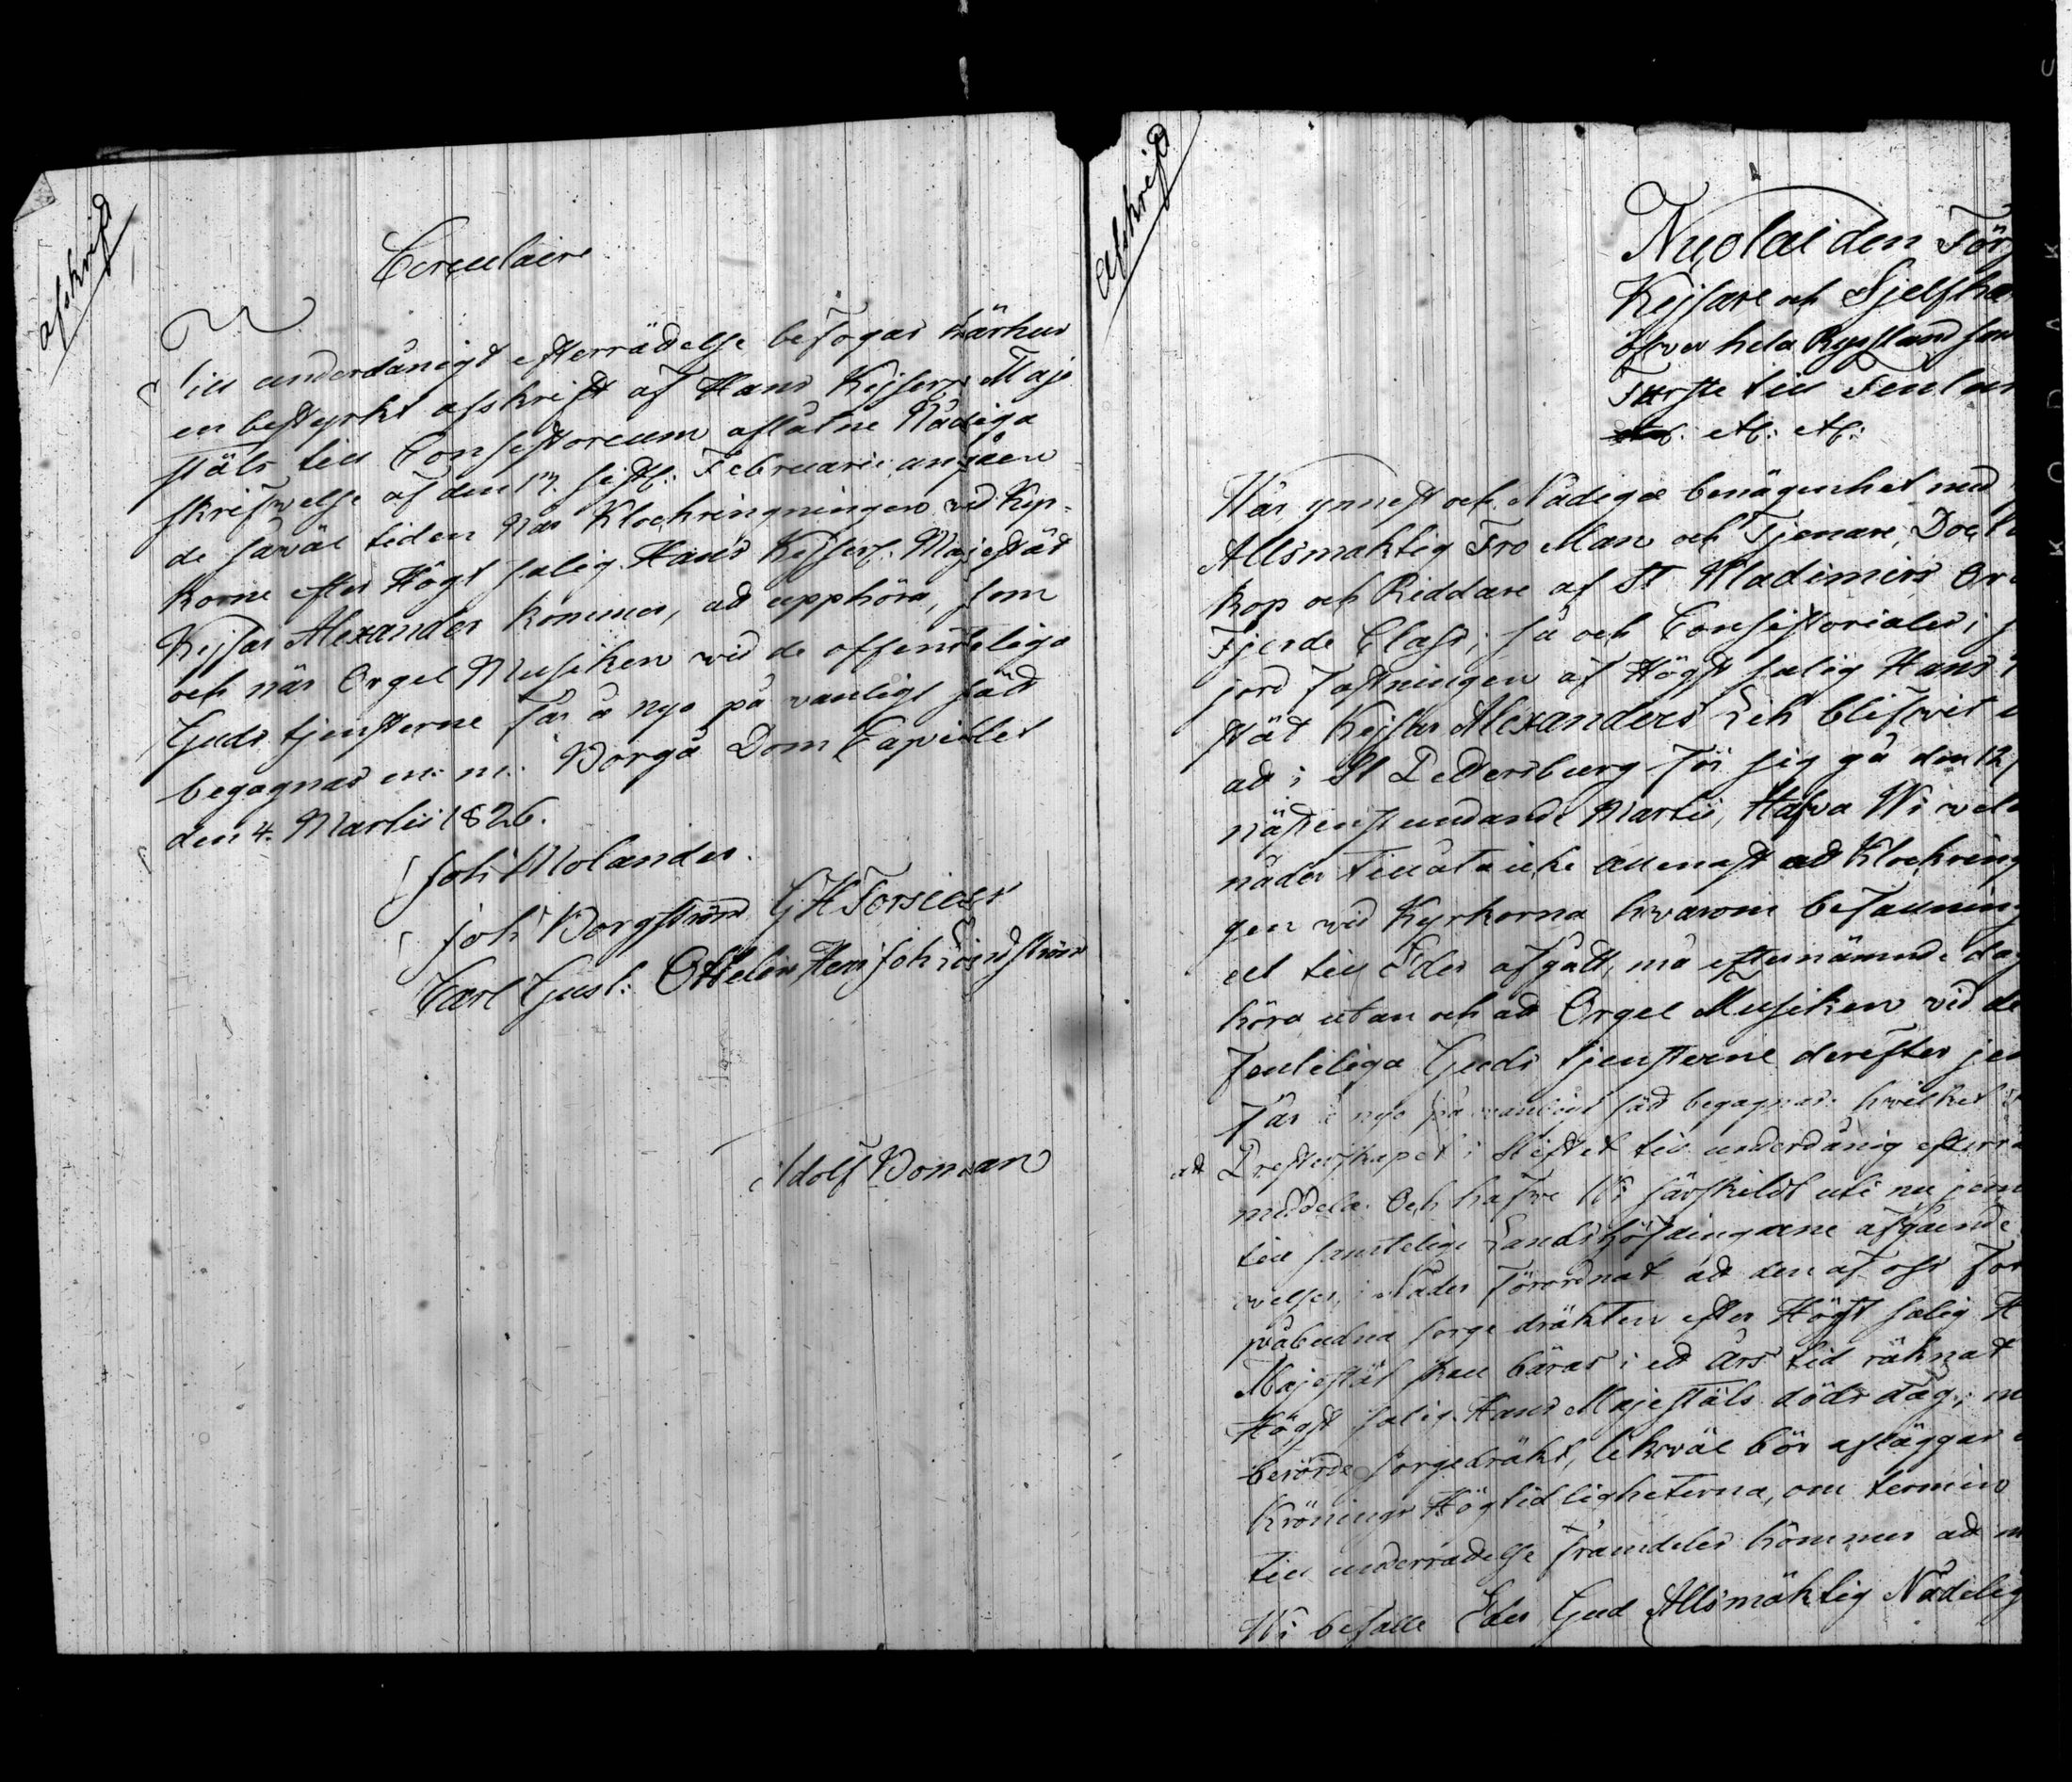 afskrift
Circulaire
Till underdånigt efterrädelse befogas härhus
en bestyrkt afskrift af Hans Kejserl: Maje
stäts till Consistorium aflåtne Nådiga
skrifwelse af den 17. sistl: Februarii angåen
de såväl tiden när Klockringningen vid Kyr-
korne efter Högt salig Hans Kejserl. Majestät
Kejsar Alexander kommer, att upphöra, som
och när Orgel Musiken wid de offenteliga
Guds tjensterne får å nyo på vanligt sätt
begagnas m: m: Borgå Dom Capitlet
den 4. Martii 1826.
Joh: Molander.
Joh: Borgström G H Forsius
Carl Gust: Ottelin Hen: Joh Lindström
Adolf Boman
Afskrift
Nicolai den För
Kejsare och Sjelfhe
öfver hela Ryssland sam
Furste till Finlan
etc: etc:
Wår ynnest och Nådiga benägenhet med
Allsmäktig Tro Man och Tjenare, Doct
kop och Riddare af St Wladimirs Or
Fjerde Class; så och Consistoriales; s
jord fästningen af Högst salig Hans
stät Kejsar Alexanders Lik blifwit u
att i St Pettersburg för sig gå den 12
nästinstundande Martii, Hafva Wi vela
nåder tillåta icke allenast att Klockring
gen wid Kyrkorna hwarom befallning
et till Eder afgått, må efternämnde dag
höra utan och att Orgel Musiken vid de
fenteliga Guds tjensterne derefter jem
får å nyo på vanligt sätt begagnas: hvilket
att Presterskapet i Stiftet till underdånig efterrä
meddela. Och hafwe Wi särskildt uti nu jem
till samtelige Landshöfdingarne afgående
welser, i Nåder förordnat att den af oss för
påbudna sorge dräkten efter Högt salig H
Majestät skall bäras i ett års tid räknat
Högst salig Hans Majestäts döds dag; m
berörde sorgedräkt, likwäl bör afläggas
Krönings Högtidligheterna, om termin
till underrädelse framdeles kommer att m
Wi befalle Eder Gud Allsmäktig Nådelig
KODAK S